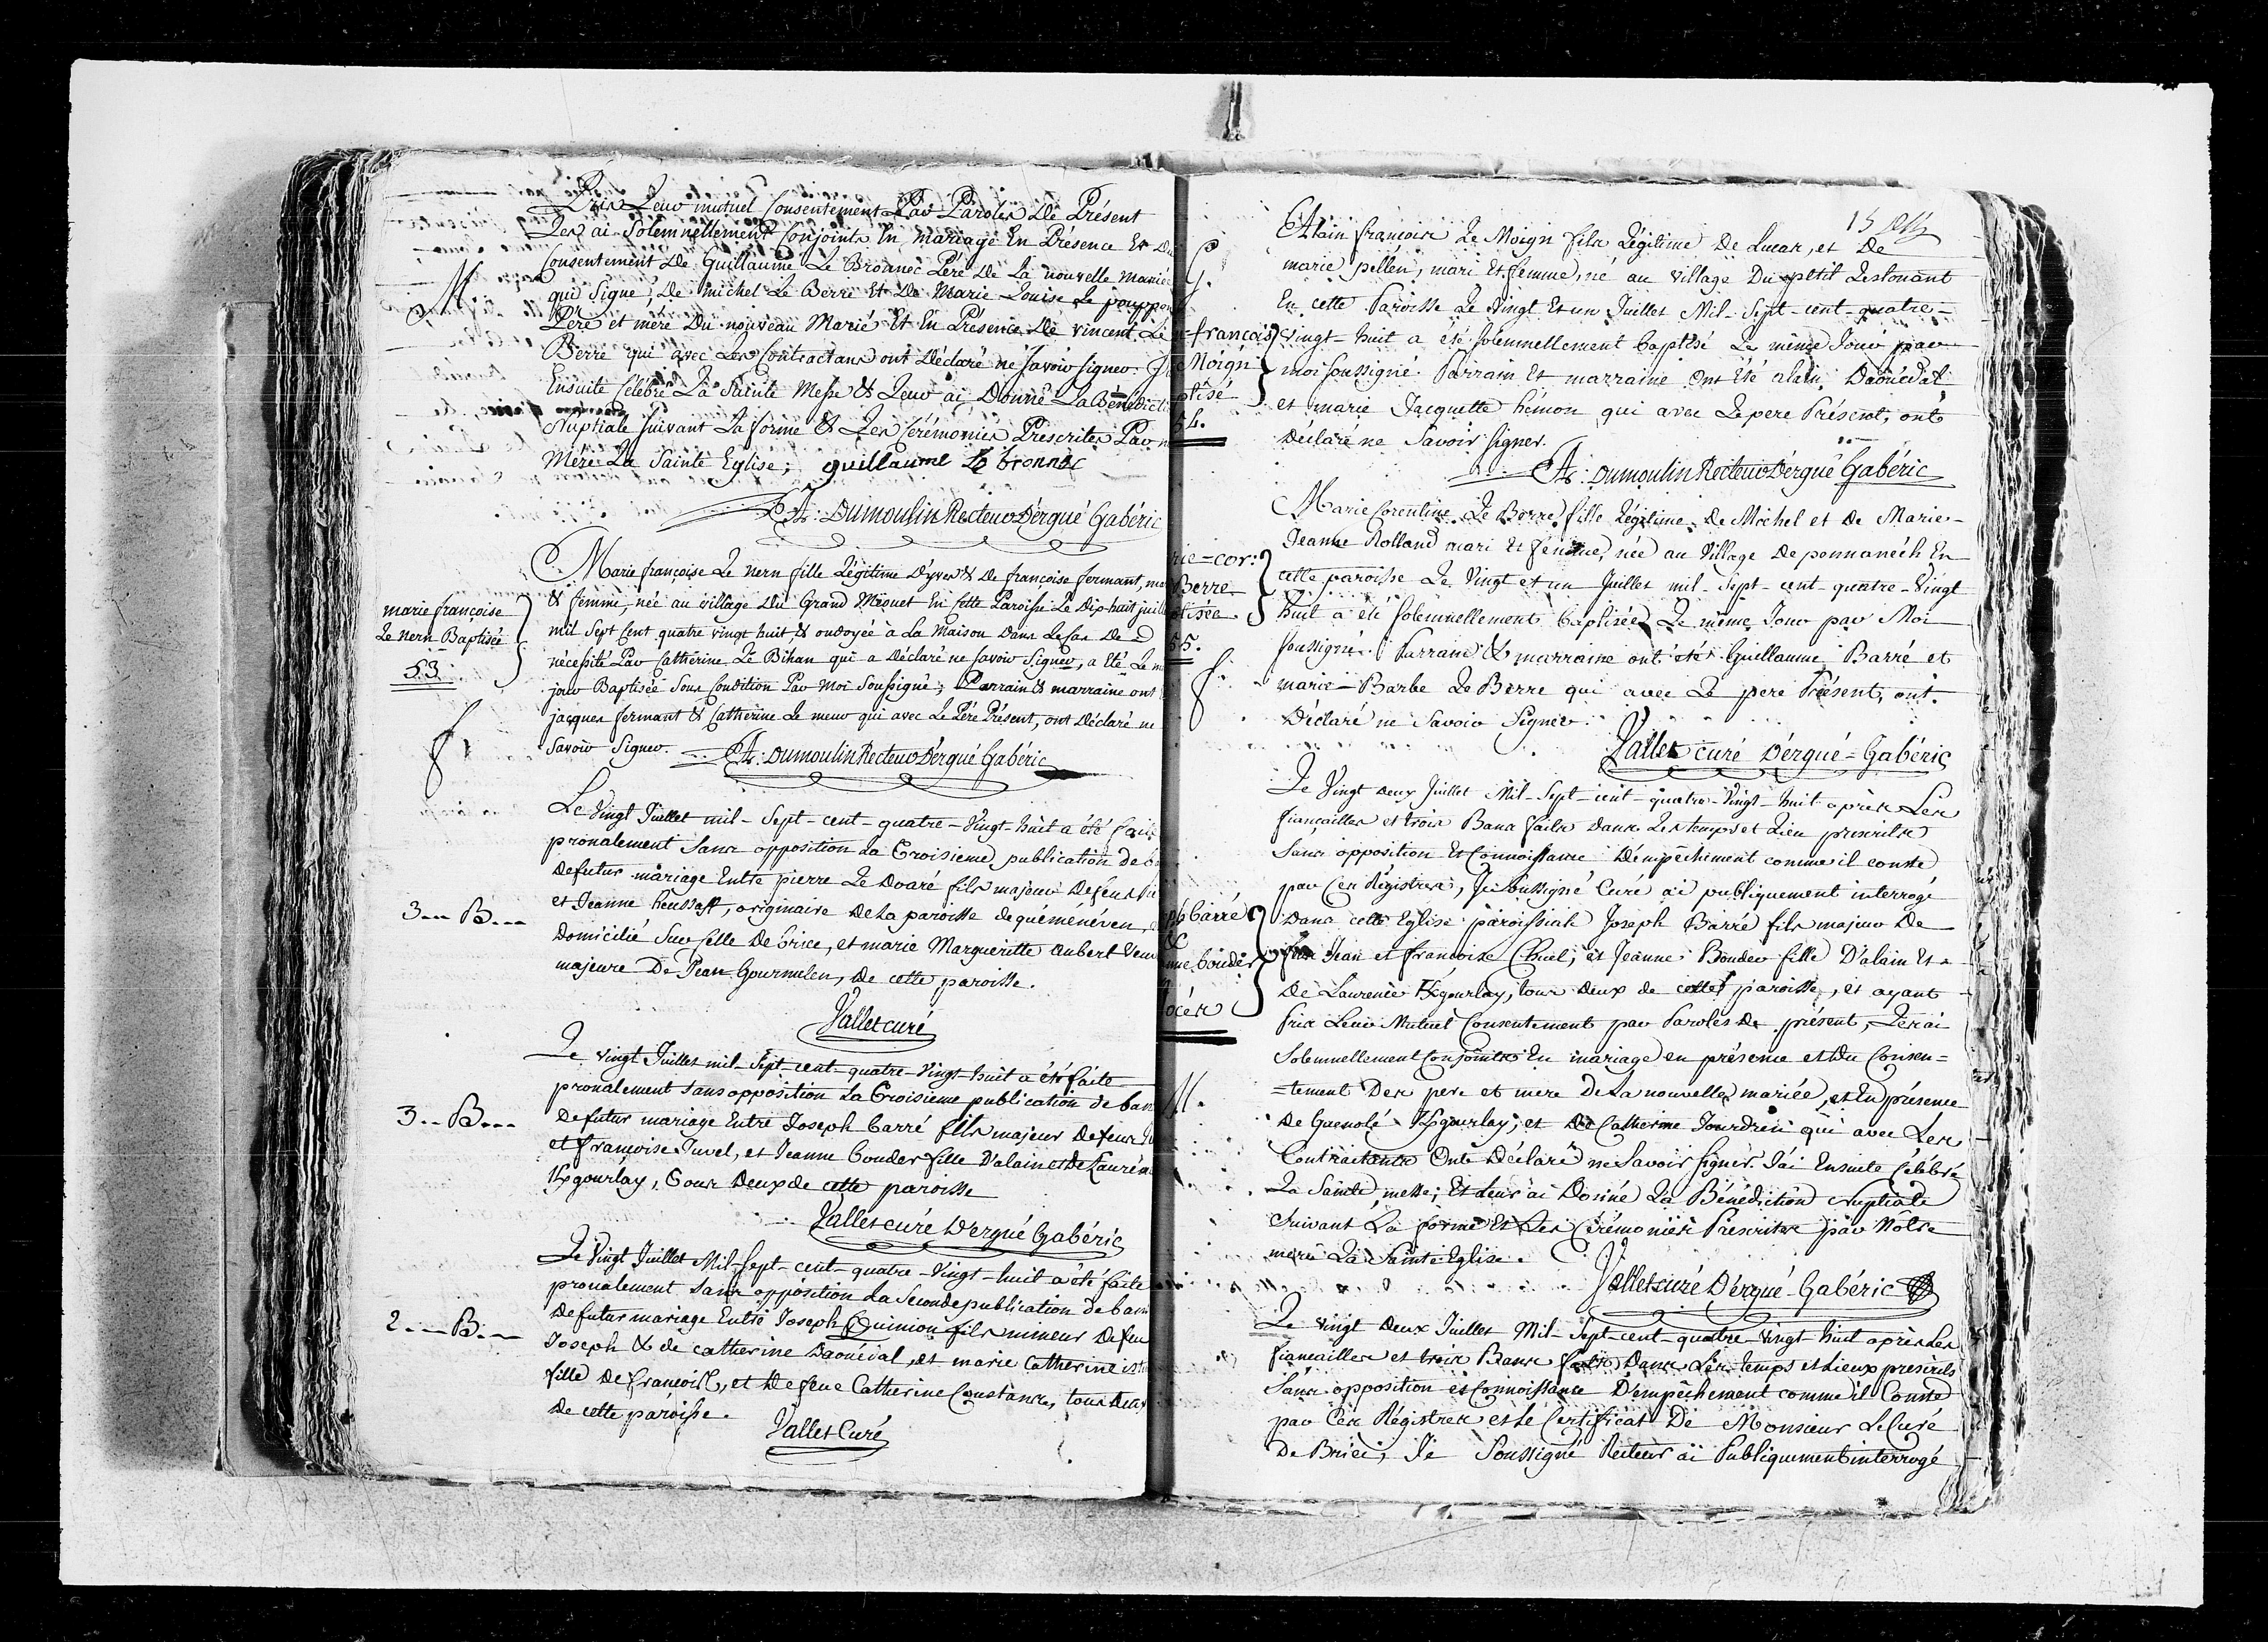 Pris Leur mutuel Consentement Par Paroles De Présent
Les ai Solemnellement Conjoints En mariage En Présence Et Du
Consentement De Guillaume Le Broannec Pére De La nouvelle Mariée
M
qui Signe, De michel Le Berre Et De Marie Louise Le pouppon
Pére et mére Du nouveau Marié Et En Présence De vincent Le
Berre qui avec Les Contractans ont Déclaré ne Savoir Signer. J'ai
Ensuite Célébré La Sainte Messe & Leur ai Donné La Bénédicti
Nuptiale Suivant La forme & Les Cérémonies Prescrites Par n
Mére La Sainte Eglise; guillaume Le bronnec
A: Dumoulin Recteur D'ergué Gabéric
Marie françoise Le nern fille Légitime D'yves & De françoise fermant, ma
& femme, née au village Du Grand Mégouet En Cette Paroisse Le Dix-huit juille
marie françoise
Le nern Baptisée
53
mil Sept Cent quatre vingt huit, & ondoyée à La Maison Dans Le Cas De
nécessité Par Catherine Le Bihan qui a Déclaré ne Savoir Signer, a Eté Le m
jour Baptisée Sous Condition Par Moi Soussigné; Parrain & marraine ont
jacques fermant & Catherine Le meur qui avec Le Pére Présent, ont Déclaré ne
f.
Savoir Signer. A: Dumoulin Recteur D'ergué Gabéric
Le Vingt Juillet mil-Sept-cent-quatre-Vingt-huit a été fait
pronalement Sans opposition La Troisieme publication de b
De futur mariage Entre pierre Le Doaré fils majeur De feus
3--- B---
et Jeanne heussaff, originaire De La paroisse de quéménéven,
Domicilié Sur Celle De brice, et marie Marguerite aubert Veuv
majeure De Jean Gourmelen, De cette paroisse.
Vallet curé
Le vingt Juillet mil-Sept-cent-quatre-Vingt-huit a été faite
pronalement Sans opposition La Troisieme publication de ban
3--- B---
De futur mariage Entre Joseph barré fils majeur De feus
et françoise Juvel, et Jeanne bouder fille D'alain et De Lauren
Kgourlay, Tous Deux de cette paroisse
Vallet curé D'ergué Gabéric
Le Vingt Juillet Mil-Sept-cent-quatre-Vingt-huit a été faite
pronalement Sans opposition La Seconde publication de ban
2--- B---
De futur mariage Entre Joseph Quinion fils mineur De feu
Joseph & de catherine Daouédal, et marie Catherine
fille De françois, et De feue Catherine Constance, tous Deux
De cette paroisse.
Vallet Curé
15
G.
françois
Moign
ptisé
54.
Alain françois Le Moign fils Légitime De Lucas, et De
marie pellen, mari Et femme, né au village Du petit Lestonant
En cette Paroisse Le Vingt Et un Juillet Mil-Sept-cent-quatre-
Vingt-huit a été Solemnellement baptisé Le même Jour par
moi Soussigné. Parrain Et marraine Ont Eté alain Daouédal
et marie Jacquette hémon qui avec Le pere Présent, ont
Déclaré ne Savoir Signer.
A: Dumoulin Recteur D'ergué Gabéric
rie-cor:
Berre
tisée
55.
f.
Marie Corentine Le Berre fille Légitime De Michel et De Marie-
Jeanne Rolland mari Et femme, née au Village De pennanéch En
cette paroisse Le Vingt et un Juillet mil-Sept-cent quatre-Vingt
huit a été Solemnellement baptisée Le même Jour par Moi
Soussigné. Parrain & marraine ont été Guillaume Barré et
marie-Barbe Le Berre qui avec Le pere Présent, ont
Déclaré ne Savoir Signer.
Vallet curé D'ergué-Gabéric
Le Vingt deux Juillet Mil-Sept-cent-quatre-Vingt-huit après Les
fiançailles et trois Bans faits Dans Les temps et Lieu prescrits
Sans opposition Et Connoissance D'empêchement comme il conste
par Ces Régistres, Je Soussigné Curé ai publiquement interrogé
ph barré
&
nne bouder
océs
Dans cette Eglise paroissiale Joseph Barré fils majeur De
feus Jean et françoise Chuel; et Jeanne Bouder fille D'alain Et
De Laurence Kgourlay, tous deux de cette paroisse, et ayant
pris Leur Mutuel Consentement par Paroles De présent, Les ai
Solemnellement Conjoints En mariage en présence et Du Consen=
M.
=tement Des pere et mere De La nouvelle mariée, et En présence
De Guenolé Kgourlay, et De Catherine Jourdren qui avec Les
Contractants Ont Déclaré ne Savoir Signer. J'ai Ensuite Célébré
La Sainte messe; Et Leur ai Donné La Bénédiction Nuptiale
Suivant La forme Et Les Cérémonies Prescrites par Nôtre
mere La Sainte Eglise.
Vallet curé D'ergué-Gabéric
Le vingt Deux Juillet Mil-Sept-cent-quatre-Vingt huit après Les
fiancailles et trois Bans faits Dans Les temps et Lieux prescrits
Sans opposition et Connoissance D'empêchement comme il Conste
par Ces Régistres et Le Certificat De Monsieur Le Curé
De Briec, Je Soussigné Recteur ai Publiquement interrogé